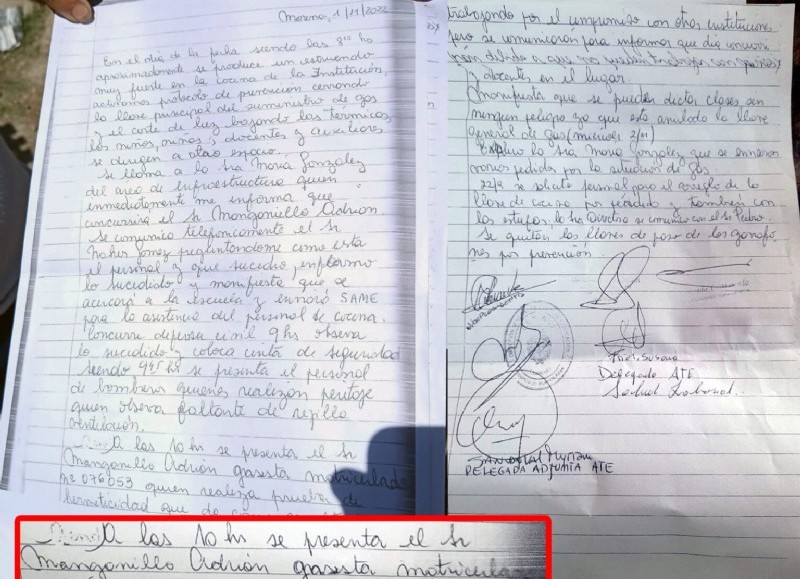 Moreno, 1/11/2022
En el día de la fecha siendo las 8:00 hs
aproximadamente se produce un estruendo
muy fuerte en la cocina de la Institución,
activamos protocolo de prevención cerrando
la llave principal del suministro de gas
y el corte de luz bajando las térmicas
los niños, niñas, docentes y auxiliares
se dirigen a otro espacio.
Se llama a la Sra María Gonzalez
del area de infraestructura quien
inmediatamente me informa que
concurrirá el Sr Manganillo Adrian.
Se comunica telefonicamente el Sr
Gomez preguntandome como esta
el personal y que sucedió, informo
lo sucedido y manifiesta que se
acercará a la escuela y enviará SAME
para la asistencia del personal de cocina.
Concurre defensa civil 9hs observa
lo sucedido y coloca cinta de seguridad
siendo 9:45 hs se presenta el personal
de bomberos quienes realizan peritaje
quien observa faltante de rejilla
ventilación.
A las 10 hs se presenta el Sr
Manganillo Adrián gasista matriculado
Nº 076053 quien realiza prueba de
hermeticidad que de
trabajando por el compromiso con otras instituciones
pero se comunicarán para informar que día
y docentes en el lugar.
Manifiesta que se pueden dictar clases sin
ningun peligro ya que está anulada la llave
general de gas (miercoles 2/11)
la Sra María Gonzalez que se enviaron
varios pedidos por la situación de gas.
22/9 se solicita personal para el arreglo de la
llave de cocina por pérdida y tambien con
las estufas, la directora se comunica con el Sr Pedro.
Se quitan las llaves de paso de las
por prevención.
Susana
Delegada ATE
Salud Laboral.
Sandoval Myriam
DELEGADA ADJUNTA ATE
A las 10 hs se presenta el Sr
Manganillo Adrión gasista